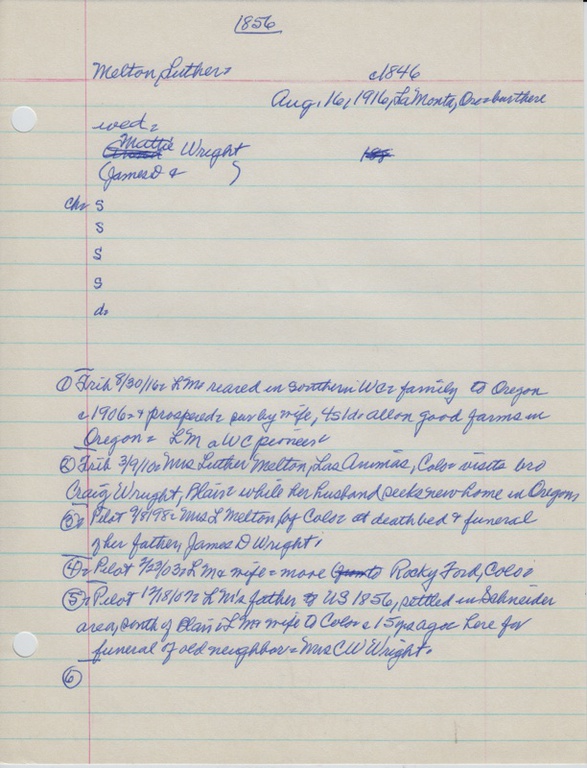 1856
Melton, Luther= c1846
Aug. 16, 1916, La Monta, Ore= bur there
wed=
Mattie Wright
(James D & )
ch= S
S
S
S
d=
① Trib 8/30/16= LM= reared in southern WC= family to Oregon
c1906= & prospered= sur by wife, 4s1d= all on good farms in
Oregon= LM a WC pioneer=
② Trib 3/9/10= Mrs Luther Melton, Las Animas, Colo= visits bro
Craig Wright, Blair= while her husband seeks new home in Oregon=
③= Pilot 9/8/98= Mrs L Melton by Colo= at deathbed & funeral
of her father, James D Wright=
④= Pilot 7/23/03= LM & wife= move Rocky Ford, Colo=
⑤= Pilot 12/18/07= LM's father to US 1856, settled in Schneider
area, south of Blair= LM & wife to Colo= c15ys ago= here for
funeral of old neighbor= Mrs CW Wright=
⑥